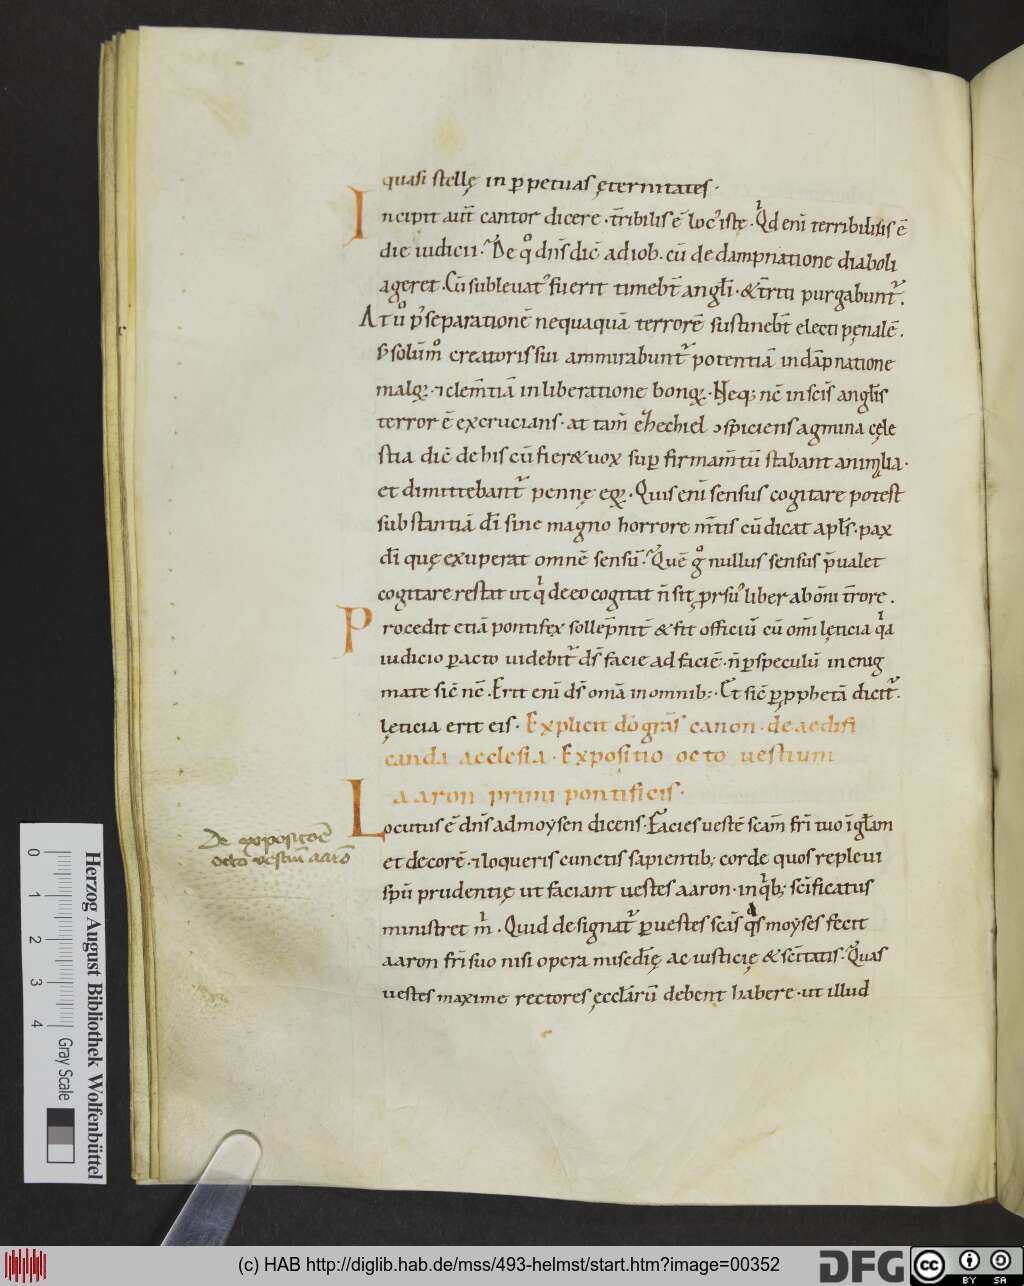 quasi stellę in ꝑpetuas ęternitates.
Incipit aut̅ cantor dicere. t̅ribilis e̅ locꝰ iste. Qͥd eni̅ terribilius e̅
die iudicii. De qͦ dn̅s dic̅ ad iob. cu̅ de dampnatione diaboli
ageret. Cu̅ subleuatꝰ fuerit timeb̅t angl̅i. & t̅riti purgabunt᷑.
At uͦ p̅ separatione̅ nequaqua̅ terrore̅ sustineb̅t electi pęnale̅.
s; solu̅mͦ creatoris sui ammirabunt᷑ potentia̅ in da̅pnatione
maloꝝ. ⁊ clem̅tia̅ in liberatione bonoꝝ. Neq; nc̅ in sc̅is angl̅is
terror e̅ excrucians. at tam̅ ezhechiel ꝯspiciens agmina cęle
stia dic̅ de his cu̅ fier& uox sup̱ firmam̅tu̅ stabant animalia.
et dimittebant᷑ pennę eoꝝ. Quis eni̅ sensus cogitare potest
substantia̅ di̅ sine magno horrore m̅tis cu̅ dicat apl̅s. pax
di̅ quę exuperat omne̅ sensu̅. Que̅ gͦ nullus sensus p̅ualet
cogitare restat ut qͥ de eo cogitat n̅ sit prorsuꝰ liber ab om̅i t̅rore.
Procedit etia̅ pontifex solle̅pnit̅ & fit officiu̅ cu̅ om̅i lęticia qͥa
iudicio ꝑacto uidebit᷑ ds̅ facie ad facie̅. n̅ ꝑ speculu̅ in enig
mate sic̅ nc̅. Erit eni̅ ds̅ om̅ia in omnib;. Et sic̅ ꝑ ꝓpheta̅ dicit᷑.
lęticia erit eis. Explicit do̅ gra̅s canon. de aedifi
canda aeclesia. Expositio octo uestium
aaron primi pontificis.
Locutus e̅ dn̅s ad moysen dicens. Facies ueste̅ sc̅am fr̅i tuo i̅ gl̅am
et decore̅. ⁊ loqueris cunctis sapientib; corde quos repleui
sp̅u prudentię ut faciant uestes aaron. in qͥb; sc̅ificatus
ministret mͥ. Quid designat᷑ ꝑ uestes sc̅as qͣs moyses fecit
aaron fr̅i suo nisi opera mis̅edię ac iusticię & sc̅itatis. Quas
uestes maxime rectores ęccl̅aru̅ debent habere. ut illud
De exposic̅oe̅
octo vestiu̅ aaro̅
Herzog August Bibliothek Wolfenbüttel
0 1 2 3 4
Gray Scale
(c) HAB http://diglib.hab.de/mss/493-helmst/start.htm?image=00352
DFG
cc BY SA